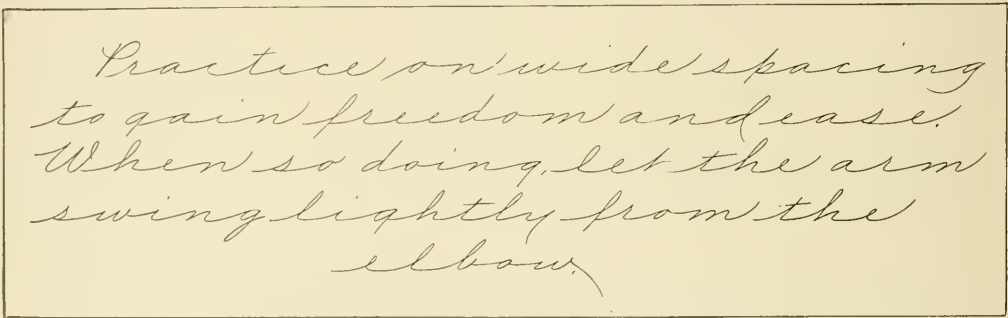 Practice on wide spacing
to gain freedom and ease.
When so doing, let the arm
swing lightly from the
elbow.